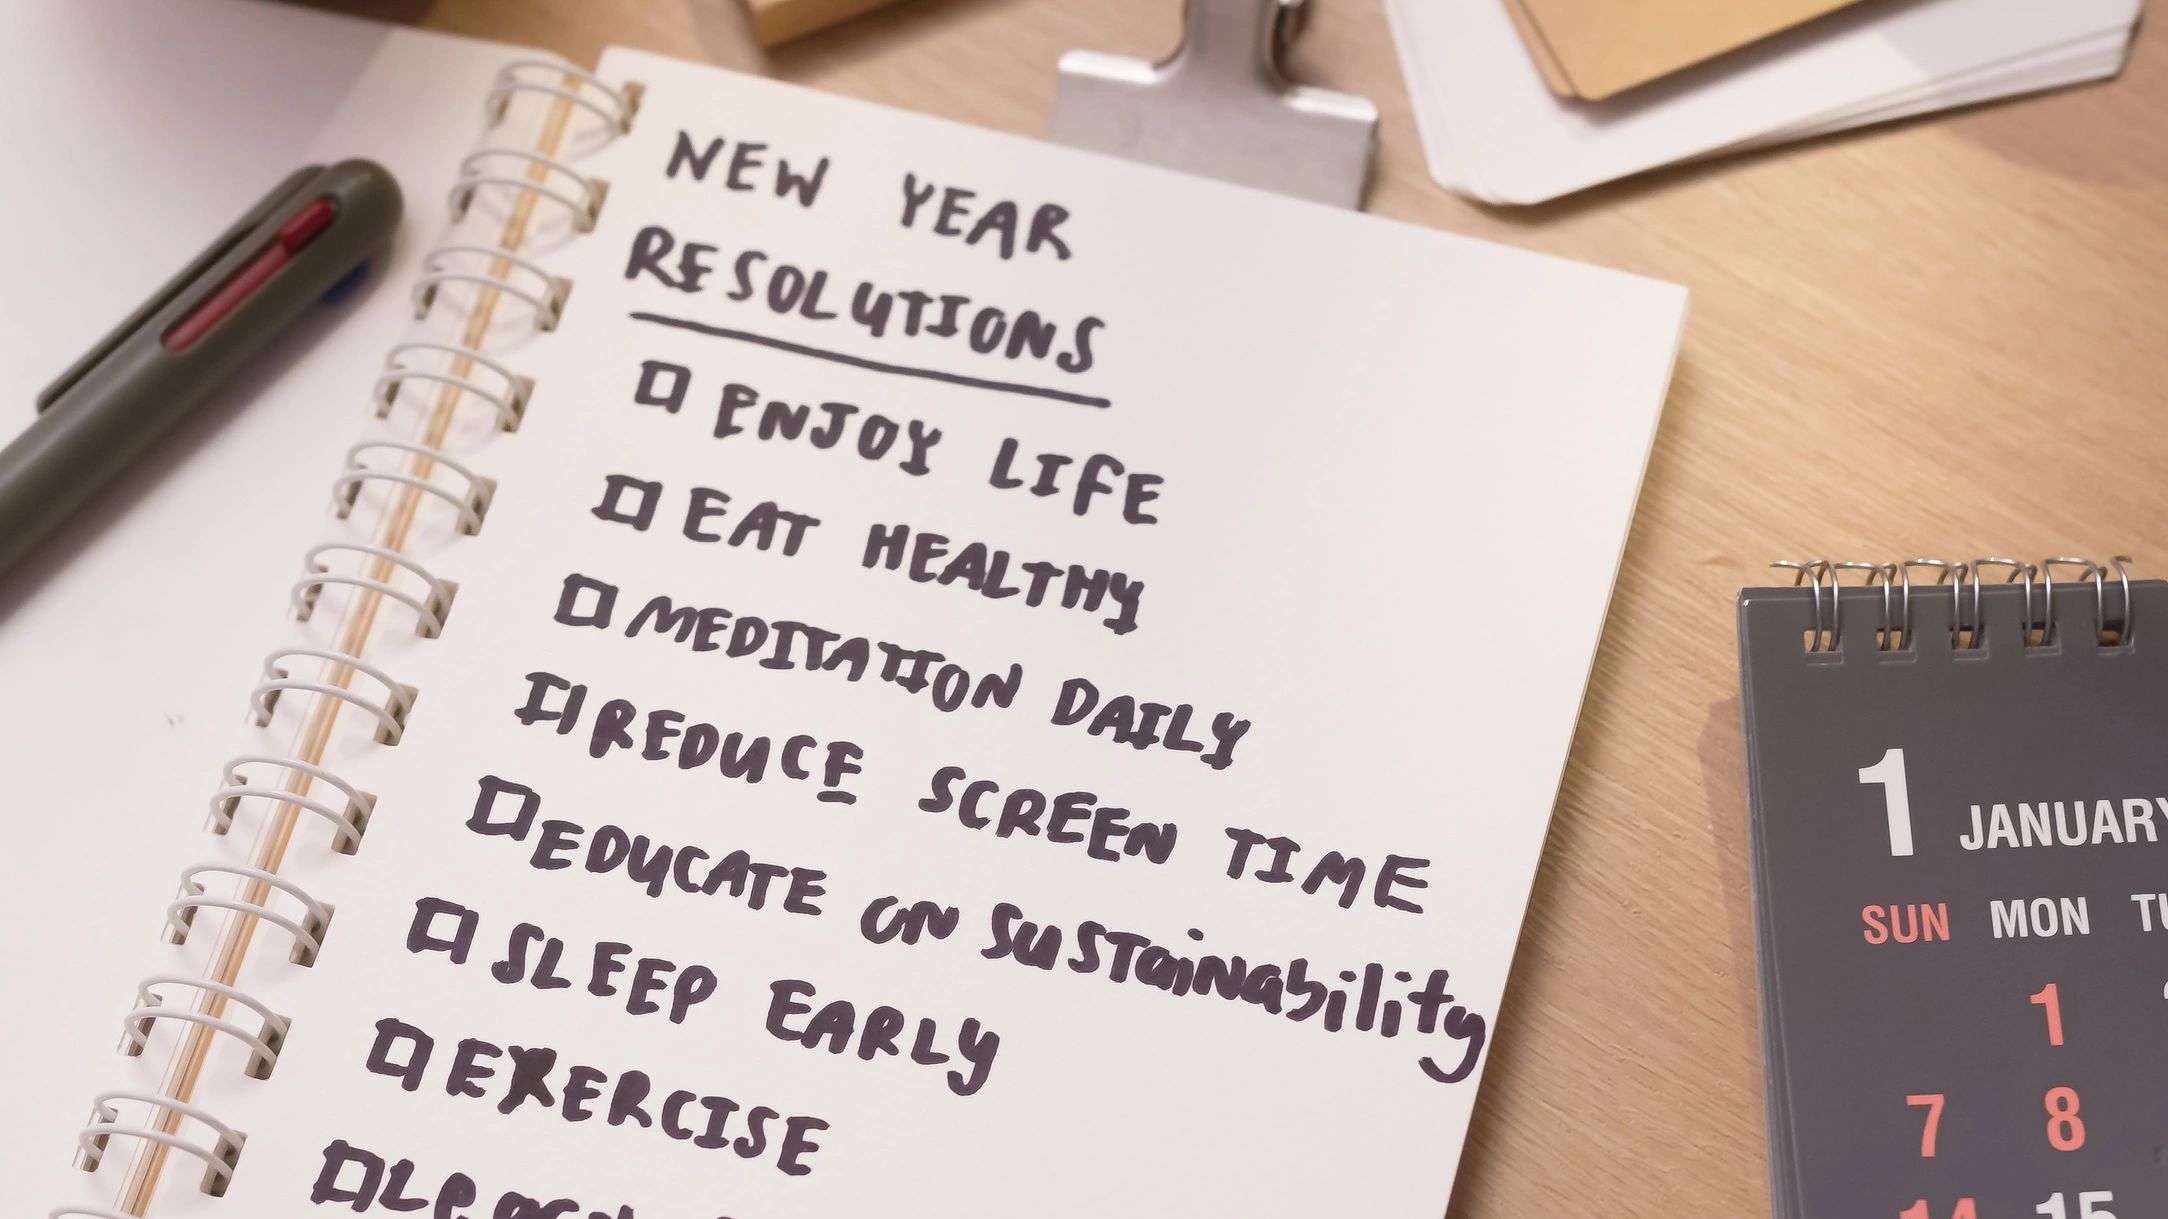 NEW YEAR
RESOLUTIONS
ENJOY LIFE
EAT HEALTHY
MEDITATION DAILY
REDUCE SCREEN TIME
EDUCATE ON SUSTAINABILITY
SLEEP EARLY
EXERCISE
1 JANUARY
SUN MON
1
7 8
14 15